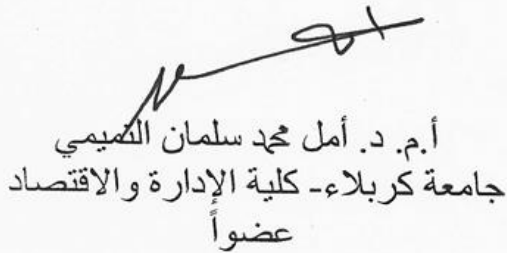 أ.م. د. أمل محمد سلمان التميمي
جامعة كربلاء- كلية الإدارة والاقتصاد
عضواً